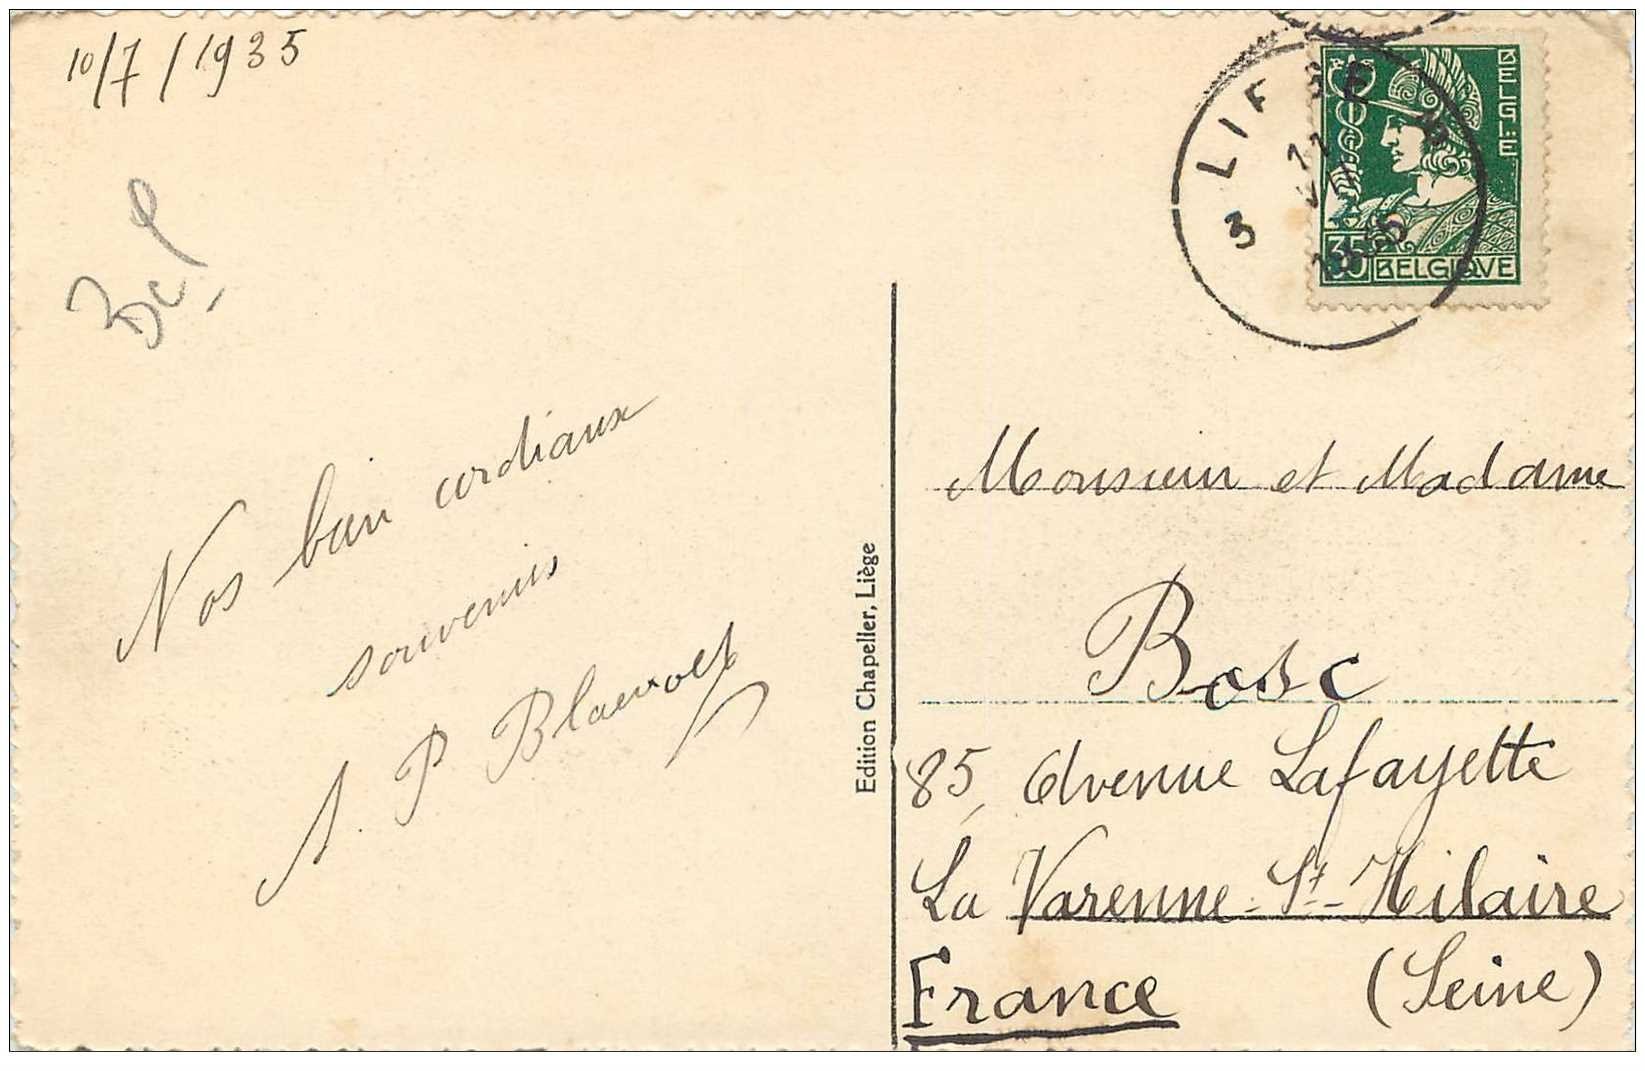 10/7/1935
Nos bien cordiaux
souvenirs
A. P. Blaevoet
Edition Chapelier, Liège
LIEGE
3
BELGIË
35 BELGIQUE
Monsieur et Madame
Bosc
85, Avenue Lafayette
La Varenne-St-Hilaire
France (Seine)